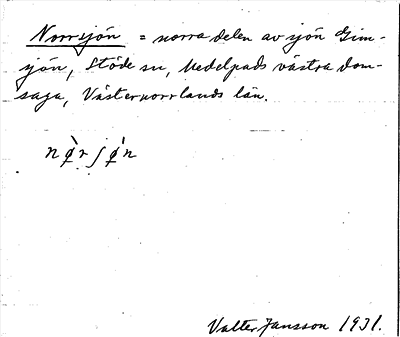 Norrsjön = norra delen av sjön Gim-
sjön, Stöde sn, Medelpads västra dom-
saga, Västernorrlands län.
nø̀rʃǿn
Valter Jansson 1931.